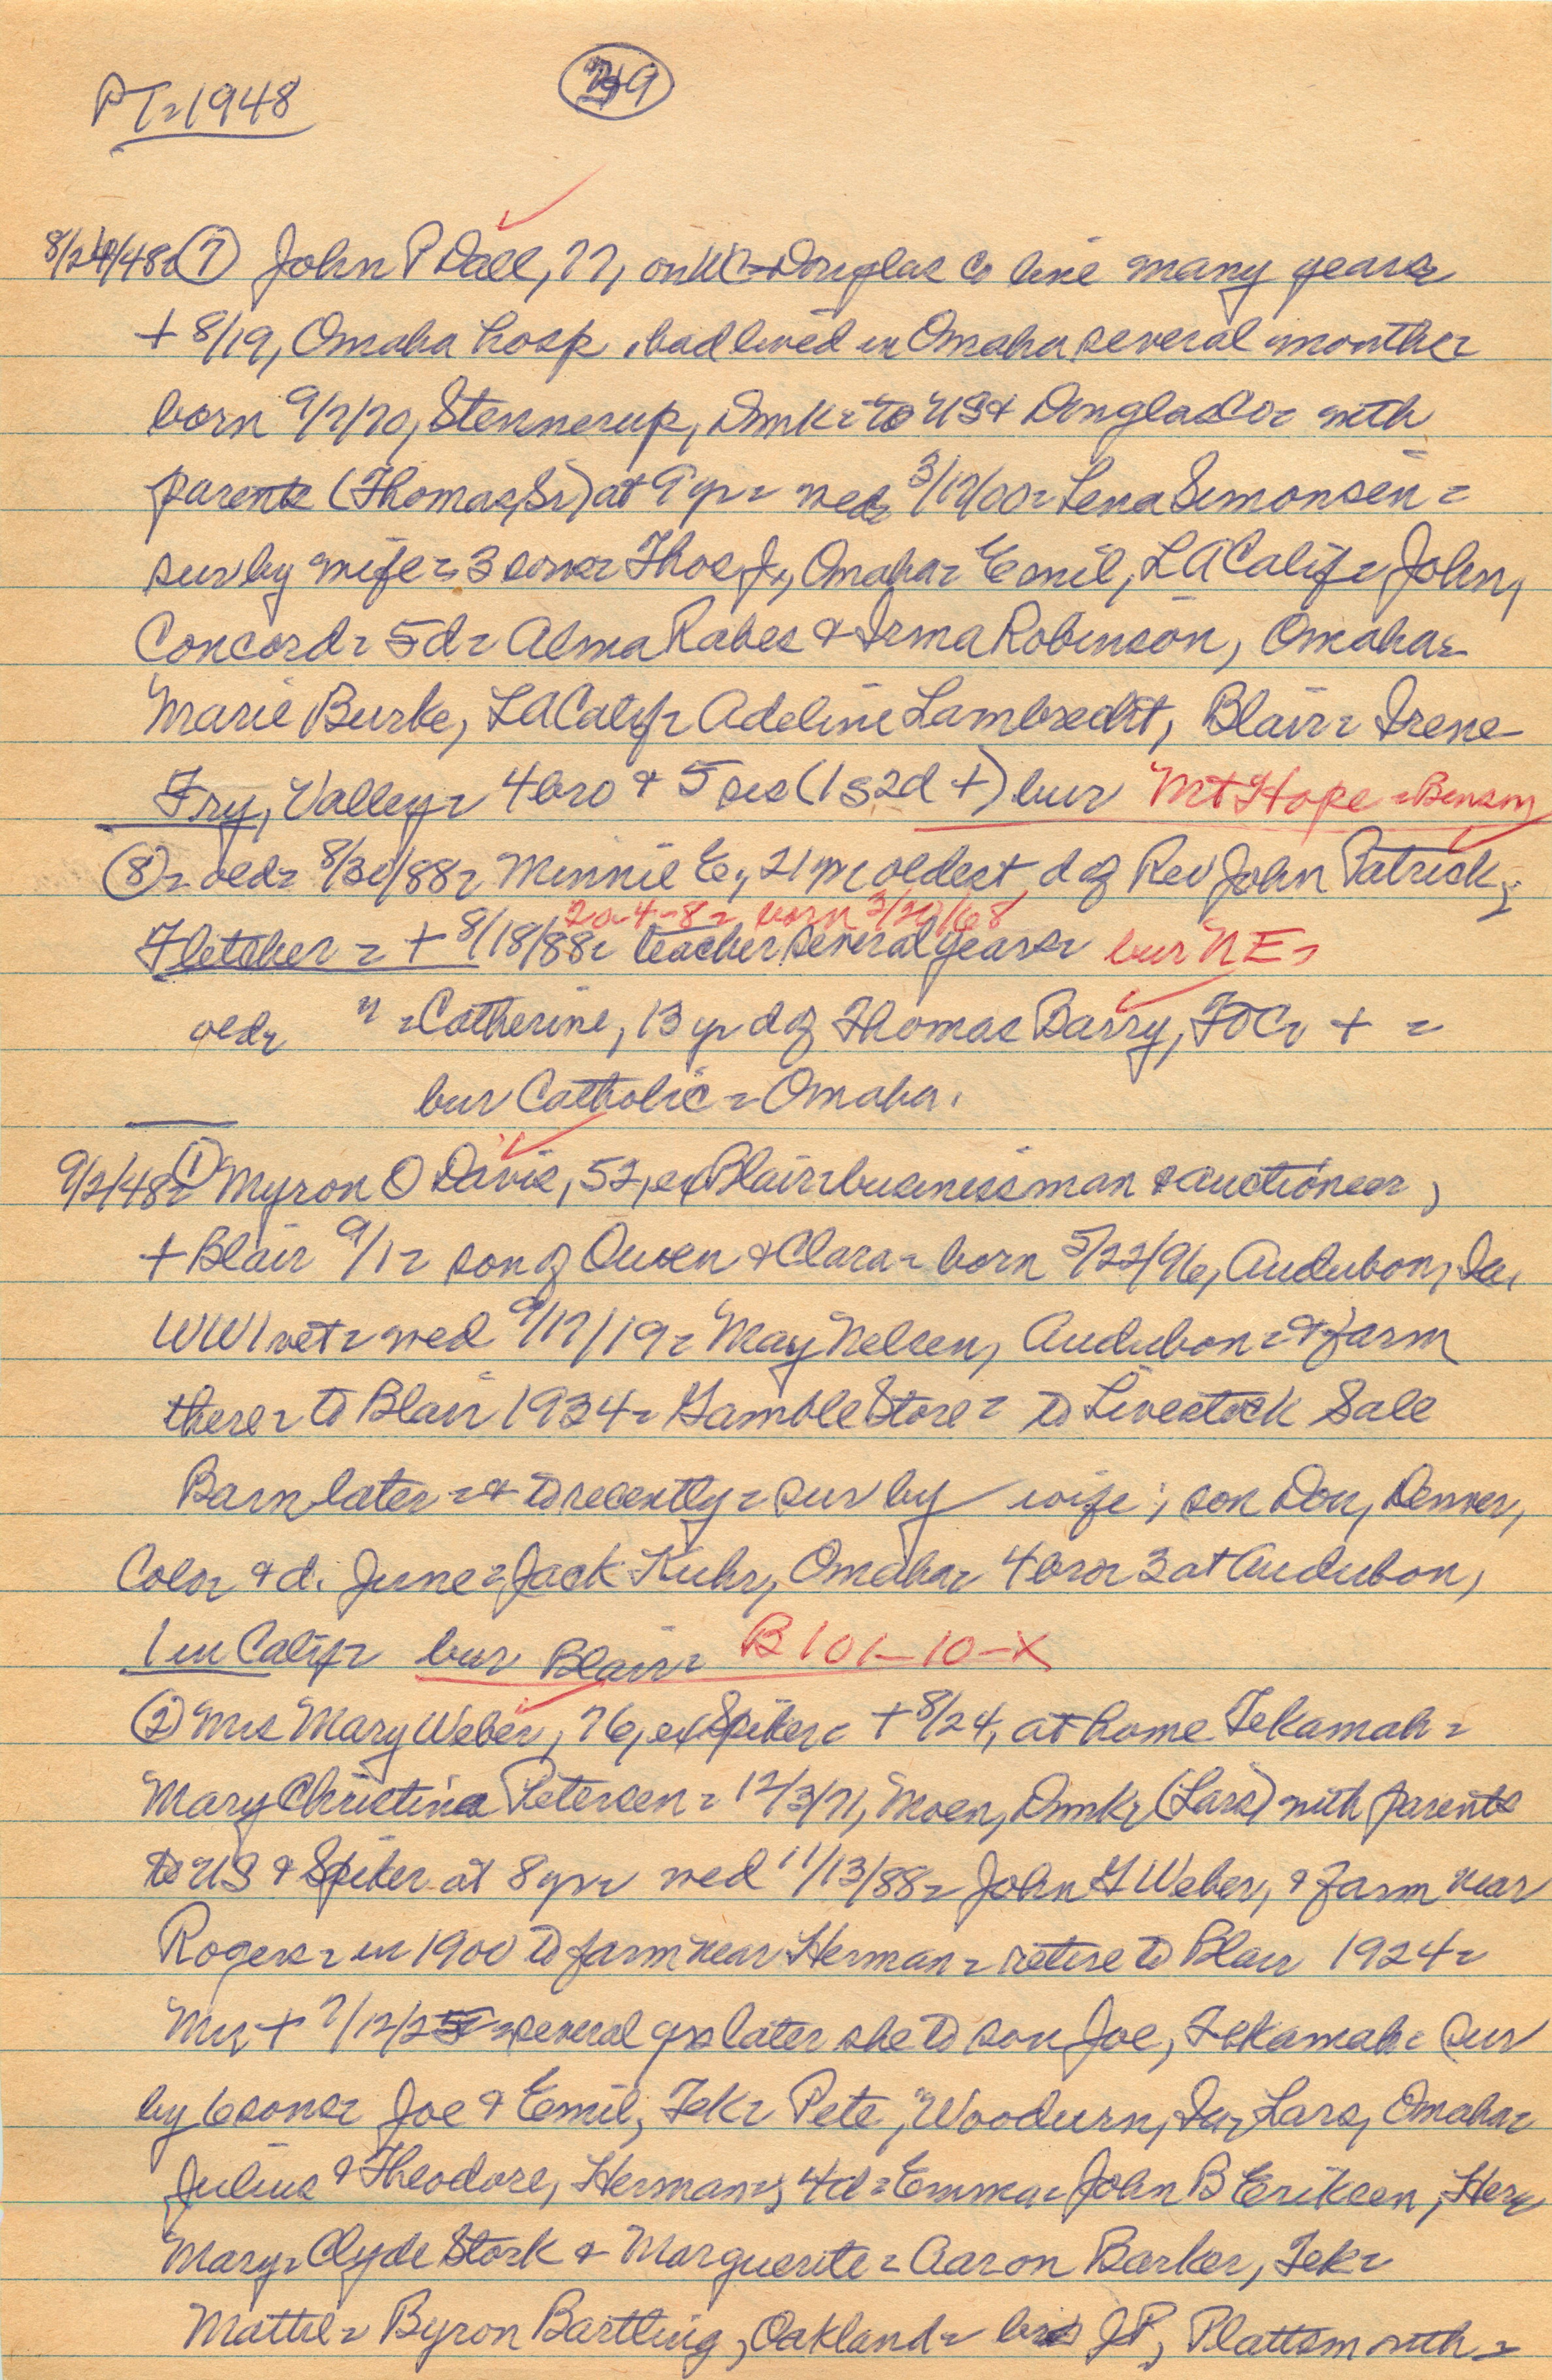 PT=1948
8/24/48= (7) John P Dall, 77, on WC=Douglas Co line many years
+ 8/19, Omaha hosp, had lived in Omaha several months=
born 9/7/70, Stennerup, Dmk= to US & Douglas Co= with
parents (Thomas, Sr) at 9 yr= wed= 3/17/00= Lena Simonsen=
sur by wife= 3 sons= Thos Jr, Omaha= Emil, LA Calif= John,
Concord= 5d= Alma Rabes & Irma Robinson, Omaha=
Marie Burke, LA Calif= Adeline Lambrecht, Blair= Irene
Fry, Valley= 4 bro & 5 sis (1s 2d +) bur Mt Hope=Benson
(8)= oed= 8/30/88= Minnie E, 21 yr oldest d of Rev John Patrick
20-4-8= born 3/20/68
Fletcher= + 8/18/88= teacher several years= bur NE=
oed= " =Catherine, 13 yr d of Thomas Barry, FOC= + =
bur Catholic=Omaha.
9/2/48= (1) Myron O Davis, 52, ex Blair=businessman & auctioneer,
+ Blair 9/1= son of Owen & Clara= born 5/22/96, Audubon, Ia,
WW1 vet= wed 9/17/19= May Nelsen, Audubon= & farm
there= to Blair 1934= Gamble Store= to Livestock Sale
Barn later= & to recently= sur by wife; son Don, Denver,
Colo= & d. June=Jack Kuhr, Omaha= 4 bro= 3 at Audubon,
1 in Calif= bur Blair= B 101-10-X
(2) Mrs Mary Weber, 76, ex Spiker= + 8/24, at home Tekamah=
Mary Christina Petersen= 12/3/71, Moen, Dmk= (Lars) with parents
to US & Spiker at 8 yr= wed 11/13/88= John G Weber, & farm near
Rogers= in 1900 to farm near Herman= retire to Blair 1924=
Mr + 7/12/25= several yrs later she to son Joe, Tekamah= sur
by 6 sons= Joe & Emil, Tek= Pete, Woodburn, Ia= Lars, Omaha=
Julius & Theodore, Herman=; 4d= Emma= John B Eriksen, Her=
Mary= Clyde Stork & Marguerite= Aaron Barker, Tek=
Mattie= Byron Bartling, Oakland= bro JP, Plattsmouth=